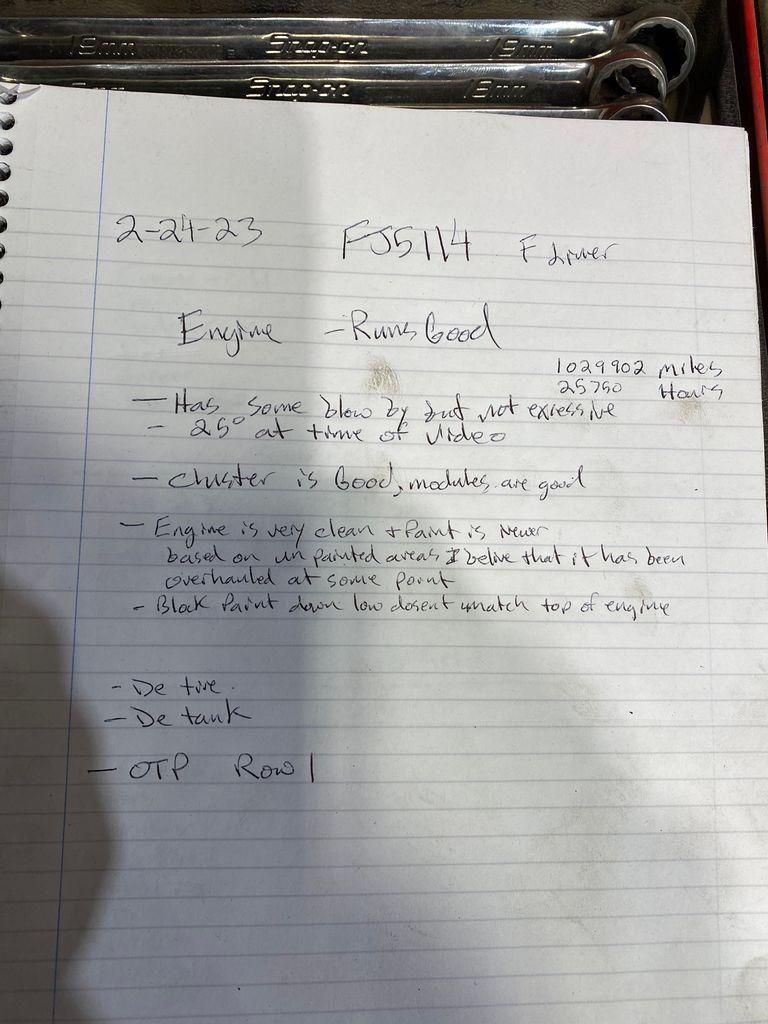 19mm Snap-on 19mm
Snap-on 18mm
2-24-23 FJ5114 F Liner
Engine - Runs Good
1029902 miles
25750 Hours
- Has some blow by but not exessive
- 25° at time of video
- Cluster is Good, modules are good
- Engine is very clean + Paint is Newer
based on un painted areas I belive that it has been
overhauled at some point
- Block Paint down low dosent match top of engine
- De tire
- De tank
- OTP Row 1